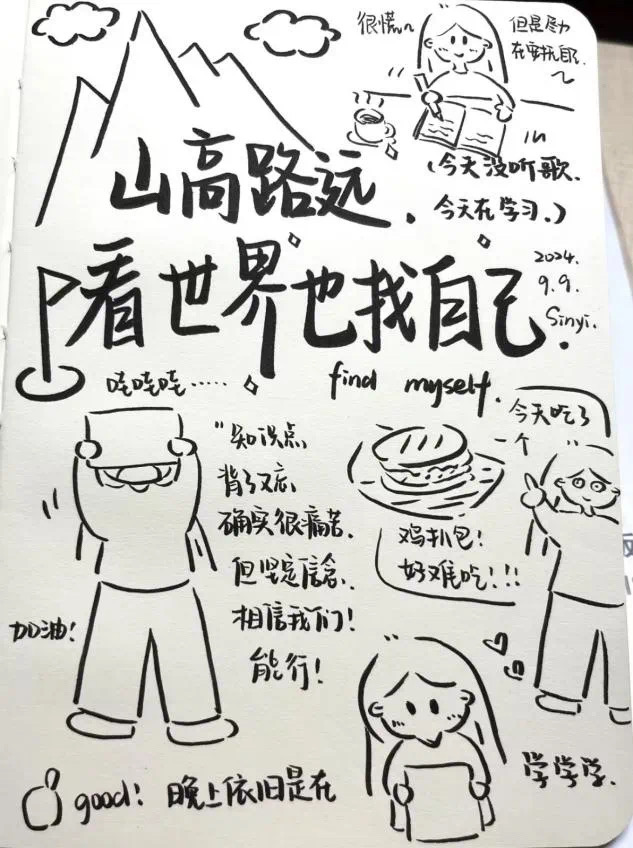 很慌~
但是尽力
在安抚自己.
(今天没听歌.
今天在学习.)
山高路远.
看世界也找自己.
2024.
9.9.
Sinyi.
find myself.
哇哇哇······
"知识点
背了又忘
确实很痛苦.
但坚定信念.
相信我们!
能行!
加油!
今天吃了
一个
鸡扒包!
好难吃!!!
good! 晚上依旧是在
学学学.